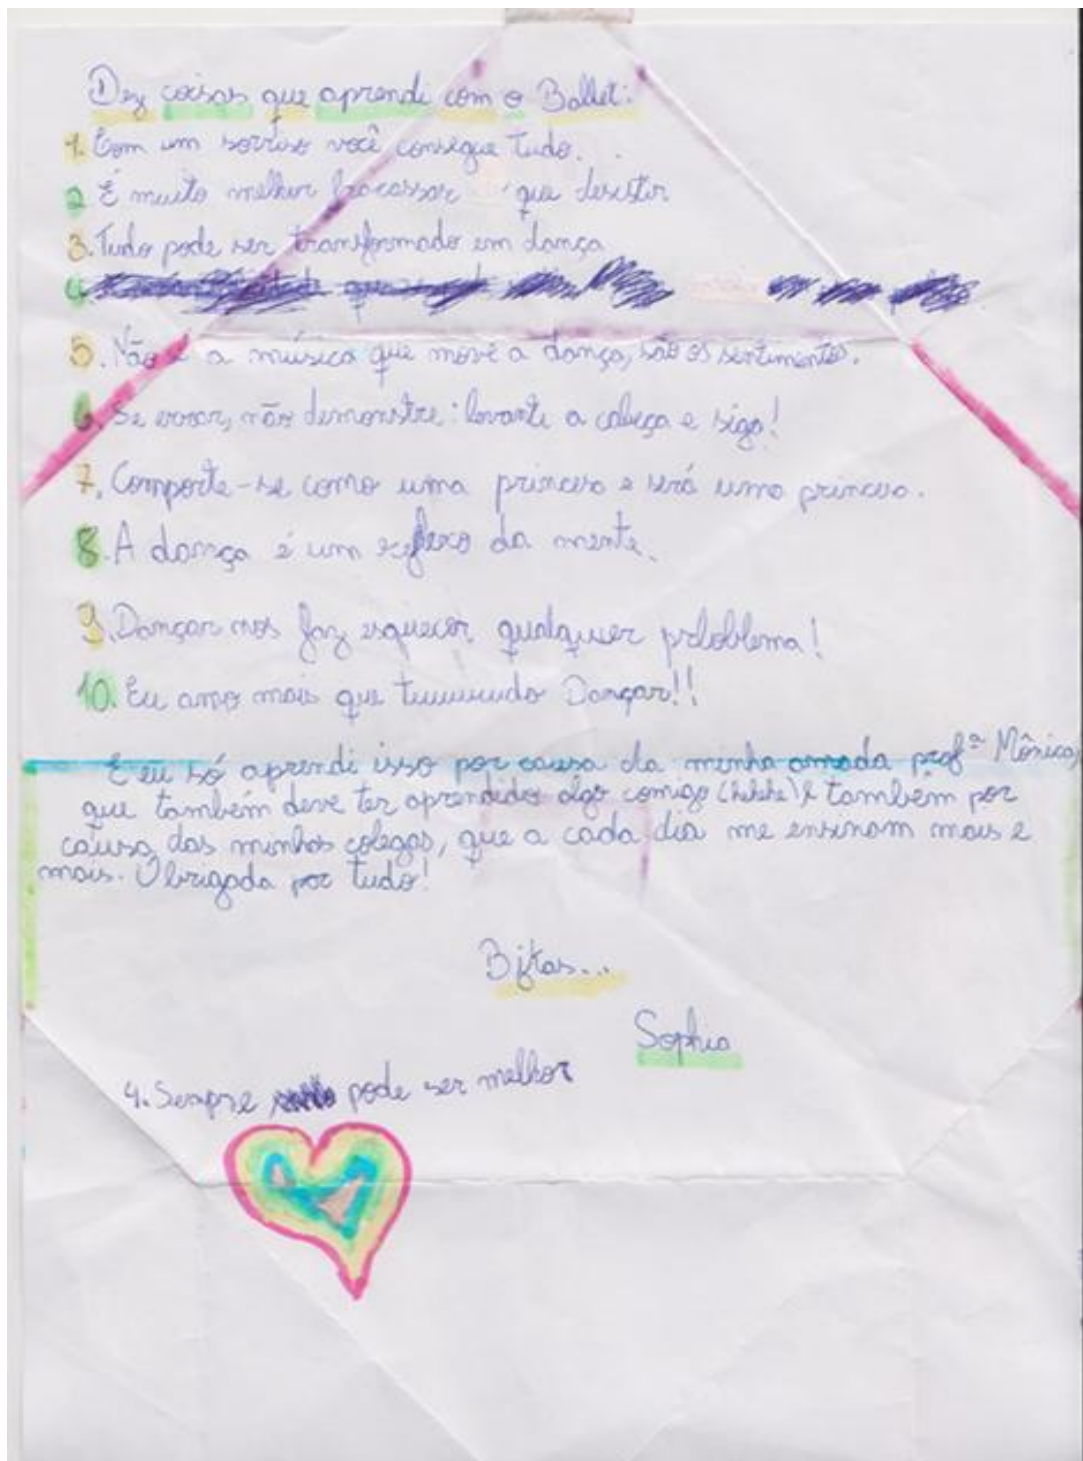 Dez coisas que aprendi com o Ballet:
1. Com um sorriso você consegue tudo.
2 É muito melhor fracassar que desistir
3. Tudo pode ser transformado em dança
4.
5. Não é a música que move a dança, são os sentimentos.
6. Se errar, não demonstre: levante a cabeça e siga!
7. Comporte-se como uma princesa e será uma princesa.
8. A dança é um reflexo da mente.
9. Dançar nos faz esquecer qualquer ploblema!
10. Eu amo mais que tuuuuudo Dançar!!
E eu só aprendi isso por causa da minha amada profª Mônica,
que também deve ter aprendido algo comigo (hehehe) e também por
causa das minhas colegas, que a cada dia me ensinam mais e
mais. Obrigada por tudo!
Bjtas...
Sophia
4. Sempre pode ser melhor